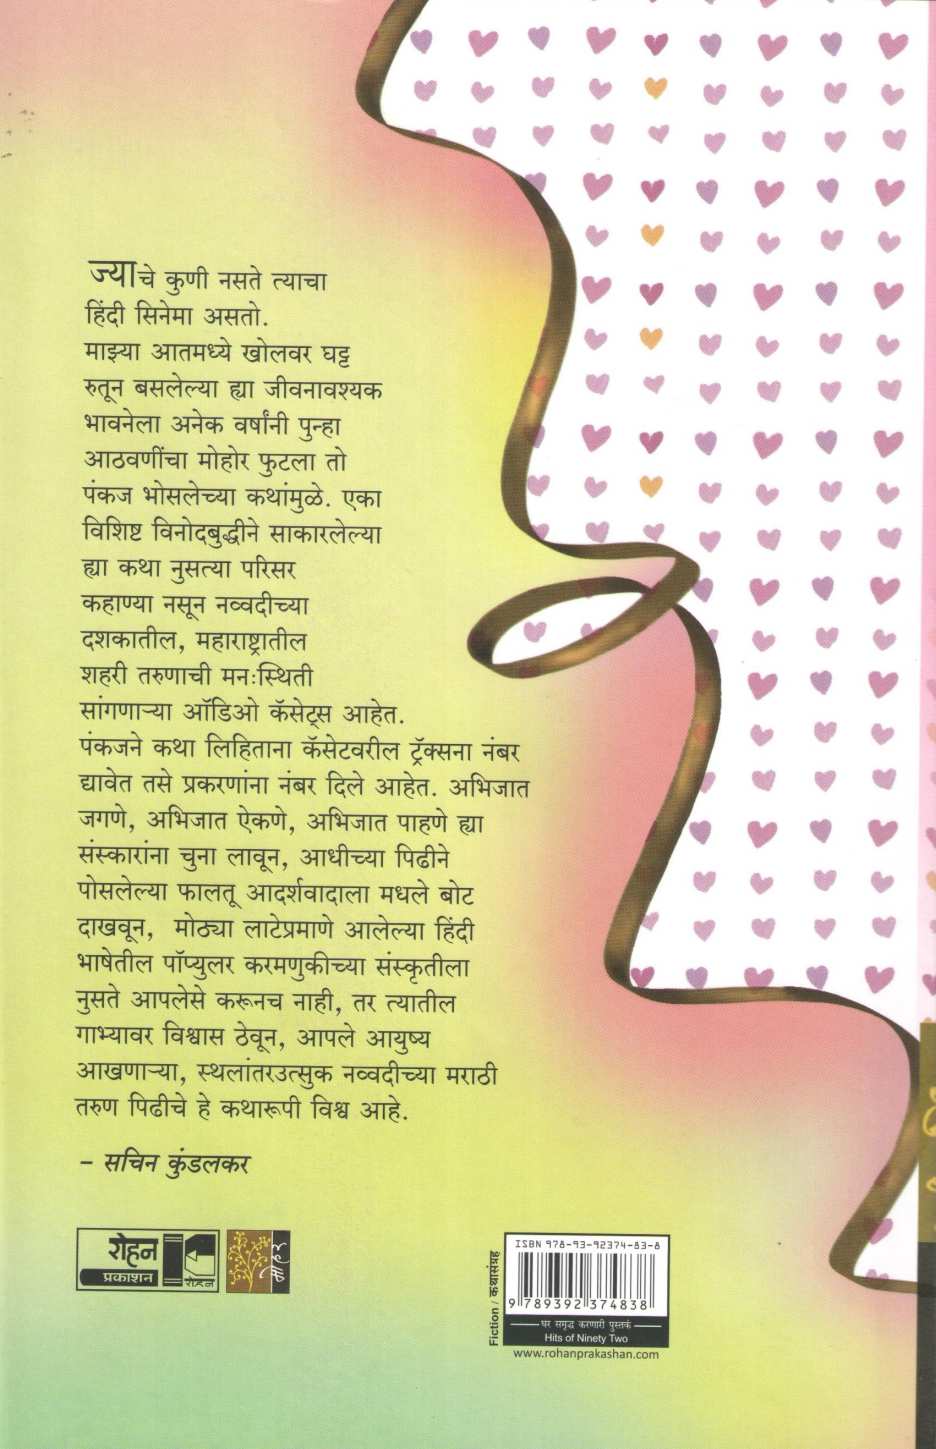 ज्याचे कुणी नसते त्याचा
हिंदी सिनेमा असतो.
माझ्या आतमध्ये खोलवर घट्ट
रुतून बसलेल्या ह्या जीवनावश्यक
भावनेला अनेक वर्षांनी पुन्हा
आठवणींचा मोहोर फुटला तो
पंकज भोसलेच्या कथांमुळे. एका
विशिष्ट विनोदबुद्धीने साकारलेल्या
ह्या कथा नुसत्या परिसर
कहाण्या नसून नव्वदीच्या
दशकातील, महाराष्ट्रातील
शहरी तरुणाची मनःस्थिती
सांगणाऱ्या ऑडिओ कॅसेट्स आहेत.
पंकजने कथा लिहिताना कॅसेटवरील ट्रॅक्सना नंबर
द्यावेत तसे प्रकरणांना नंबर दिले आहेत. अभिजात
जगणे, अभिजात ऐकणे, अभिजात पाहणे ह्या
संस्कारांना चुना लावून, आधीच्या पिढीने
पोसलेल्या फालतू आदर्शवादाला मधले बोट
दाखवून, मोठ्या लाटेप्रमाणे आलेल्या हिंदी
भाषेतील पॉप्युलर करमणुकीच्या संस्कृतीला
नुसते आपलेसे करूनच नाही, तर त्यातील
गाभ्यावर विश्वास ठेवून, आपले आयुष्य
आखणाऱ्या, स्थलांतरउत्सुक नव्वदीच्या मराठी
तरुण पिढीचे हे कथारूपी विश्व आहे.
– सचिन कुंडलकर
रोहन
प्रकाशन
रोहन
मोहर
Fiction / कथासंग्रह
ISBN 978-93-92374-83-8
9 789392 374838
घर समृद्ध करणारी पुस्तकं
Hits of Ninety Two
www.rohanprakashan.com